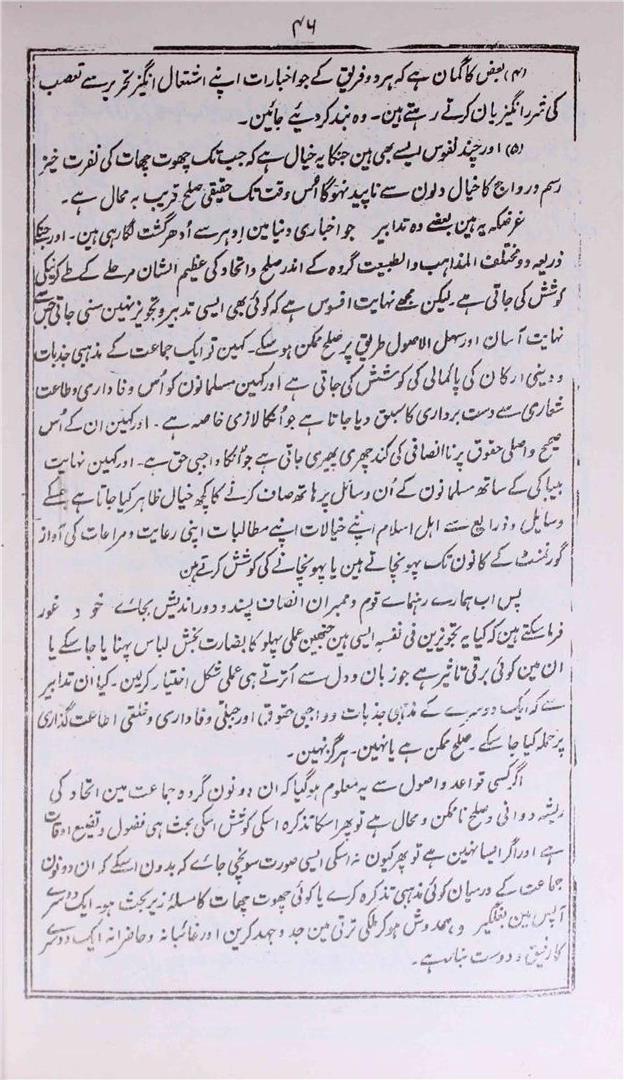 ۴۶
(۴) بعض کا گمان ہے کہ ہر دو فریق کے جو اخبارات اپنے اشتعال انگیز تحریر سے تعصب
کی شرر انگیز بان کرتے رہتے ہین۔ وہ بند کر دیئے جائین۔
(۵) اور چند نفوس ایسے بھی ہین جنکا یہ خیال ہے کہ جب تک چھوت چھات کی نفرت خیز
رسم و رواج کا خیال دلون سے ناپید نہوگا اُس وقت تک حقیقی صلح قریب بہ محال ہے۔
غرضکہ یہ ہین بعضے وہ تدابیر جو اخباری دنیا مین اِدہر سے اُدھر گشت لگا رہی ہین۔ اور جنکے
ذریعہ دو مختلف المذاہب والطبیعت گروہ کے اندر صلح و اتحاد کی عظیم الشان مرحلے کے طے کرنیکی
کوشش کی جاتی ہے۔ لیکن مجھے نہایت افسوس ہے کہ کوئی بھی ایسی تدبیر و تجویز نہین سنی جاتی جس سے
نہایت آسان اور سہل الاصول طریق پر صلح ممکن ہو سکے۔ کہین تو ایک جماعت کے مذہبی جذبات
و دینی ارکان کی پامالی کی کوشش کی جاتی ہے اور کہین مسلمانون کو اُس وفاداری و طاعت
شعاری سے دست برداری کا سبق دیا جاتا ہے جو اُنکا لازمی خاصہ ہے۔ اور کہین ان کے اُس
صحیح و اصلی حقوق پر نا انصافی کی کند چھری پھیری جاتی ہے جو اُنکا واجبی حق ہے۔ اور کہین نہایت
بیباکی کے ساتھ مسلمانون کے اُن وسائل پر ہاتھ صاف کرنے کا کچھ خیال ظاہر کیا جاتا ہے جسکے
وسایل و ذرایع سے اہل اسلام اپنے خیالات اپنے مطالبات اپنی رعایت و مراعات کی آواز
گورنمنٹ کے کانون تک پہونچاتے ہین یا پہونچانے کی کوشش کرتے ہین
پس اب ہمارے رہنماے قوم و ممبران انصاف پسند و دور اندیش بجاے خود غور
فرما سکتے ہین کہ کیا یہ تجویزین فی نفسہ ایسی ہین جنھین عملی پہلو کا بصارت بخش لباس پہنا یا جا سکے یا
ان مین کوئی برقی تاثیر ہے جو زبان و دل سے اُترتے ہی عملی شکل اختیار کر لین۔ کیا ان تدابیر
سے کہ ایک دوسرے کے مذہبی جذبات و واجبی حقوق اور جبلی وفاداری و خلقی اطاعت گذاری
پر حملہ کیا جا سکے۔ صلح ممکن ہے یا نہین۔ ہرگز نہین۔
اگر کسی قواعد و اصول سے یہ معلوم ہوگیا کہ ان دونون گروہ جماعت مین اتحاد کی
ریشہ دوانی و صلح نا ممکن و محال ہے تو پھر اسکا تذکرہ اسکی کوشش اسکی بحث ہی فضول و تضیع اوقات
ہے اور اگر ایسا نہین ہے تو پھر کیون نہ اسکی ایسی صورت سونچی جائے کہ بدون اسکے کہ ان دونون
جماعت کے درمیان کوئی مذہبی تذکرہ کرے یا کوئی چھوت چھات کا مسئلہ زیر بحث ہو۔ ایک دوسرے
آپس مین بغلگیر و ہمدوش ہو کر ملکی ترقی مین جد و جہد کرین اور غائبانہ و حاضرانہ ایک دوسرے
کا رفیق و دوست بنا رہے۔